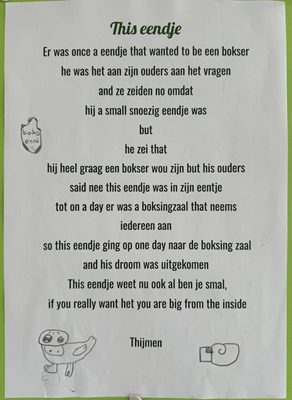 This eendje
Er was once a eendje that wanted to be een bokser
he was het aan zijn ouders aan het vragen
and ze zeiden no omdat
hij a small snoezig eendje was
but
he zei that
hij heel graag een bokser wou zijn but his ouders
said nee this eendje was in zijn eentje
tot on a day er was a boksingzaal that neems
iedereen aan
so this eendje ging op one day naar de boksing zaal
and his droom was uitgekomen
This eendje weet nu ook al ben je smal,
if you really want het you are big from the inside
Thijmen